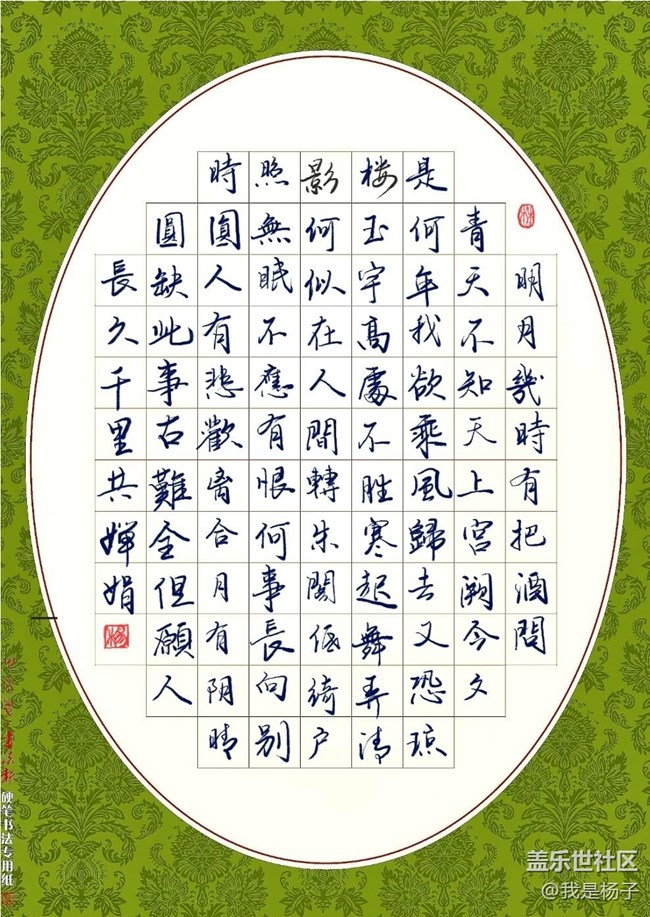 明月幾時有把酒問
青天不知天上宮闕今夕
是何年我欲乘風歸去又恐琼
楼玉宇高處不胜寒起舞弄清
影何似在人間轉朱閣低綺户
照無眠不應有恨何事長向别
時圓人有悲歡离合月有阴晴
圓缺此事古難全但願人
長久千里共婵娟
杨
硬笔书法专用纸
盖乐世社区
@我是杨子